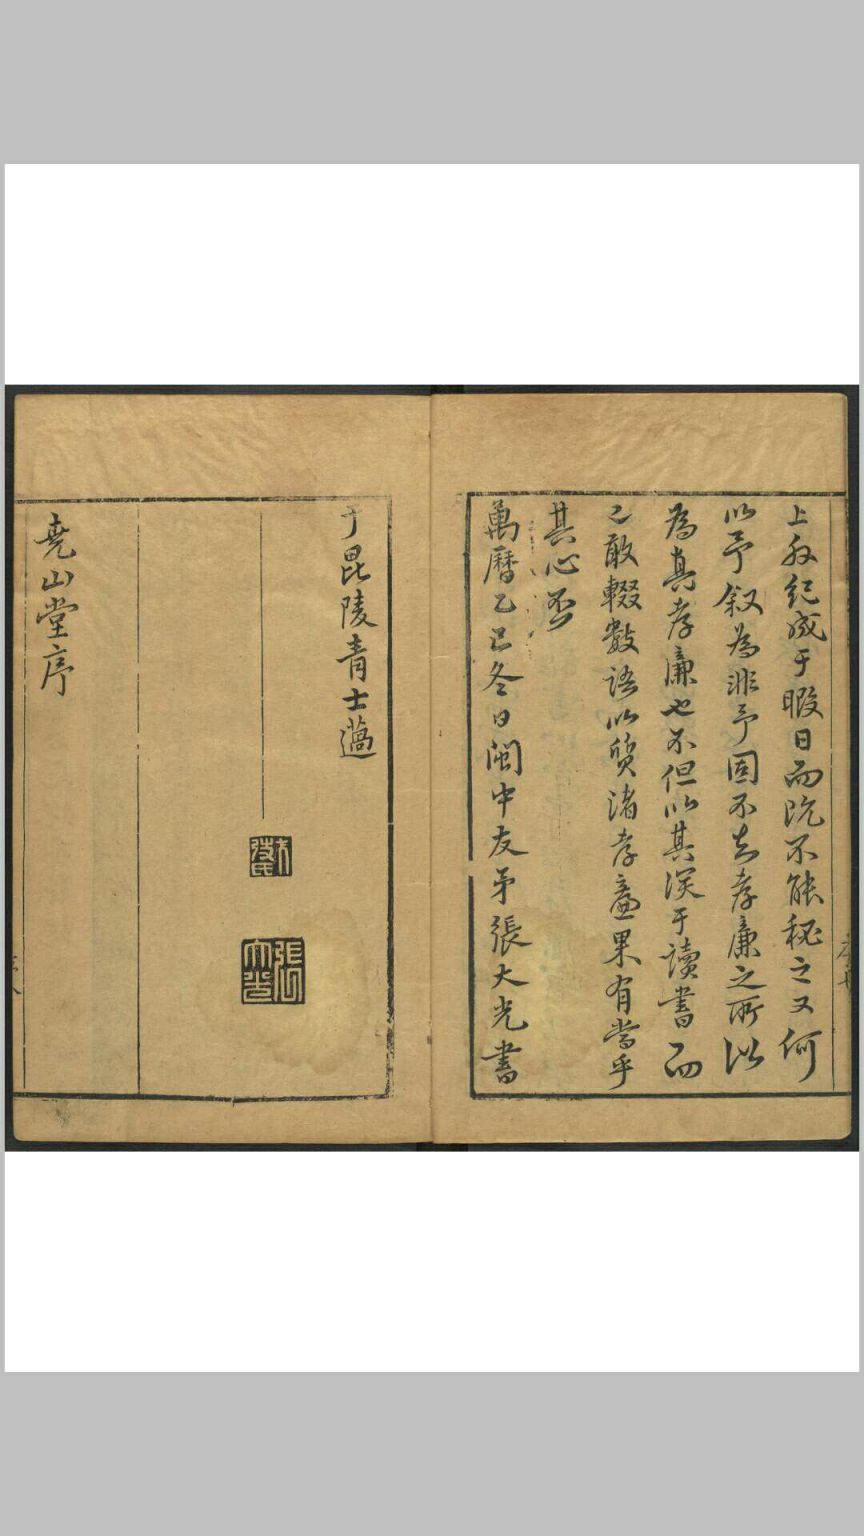 上外紀成于暇日而既不能秘之又何
以予叙為非予固不知孝廉之所以
為真孝廉也不但以其深于讀書而
已敢輟數語以質諸孝廉果有當乎
其心否
萬曆乙巳冬日閩中友弟張大光書
于毘陵青士薖
堯山堂序